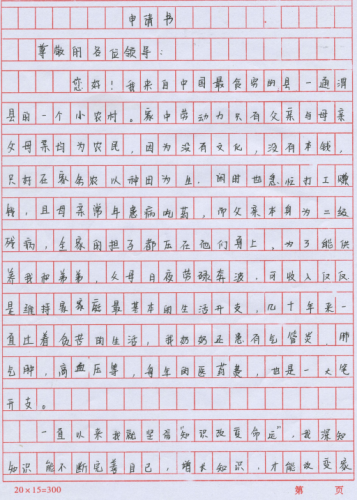 申请书
尊敬的各位领导：
您好！我来自中国最贫穷的县一通渭
县的一个小农村。家中劳动力只有父亲与母亲
父母亲均为农民，因为没有文化，没有本钱，
只好在家务农以种田为生，闲时也急忙打工赚
钱，且母亲常年患病吃药，而父亲本身为二级
残病，全家的担子都压在他们身上。为了能供
养我和弟弟，父母日夜劳碌奔波，可收入仅仅
是维持家庭最基本的生活开支，几十年来一
直过着贫苦的生活，我奶奶还患有气管炎，肺
气肿，高血压等，每年的医药费，也是一大笔
开支。
一直以来我就坚信“知识改变命运”，我深知
知识能不断完善自己，增长知识，才能改变家
20×15=300 第 页